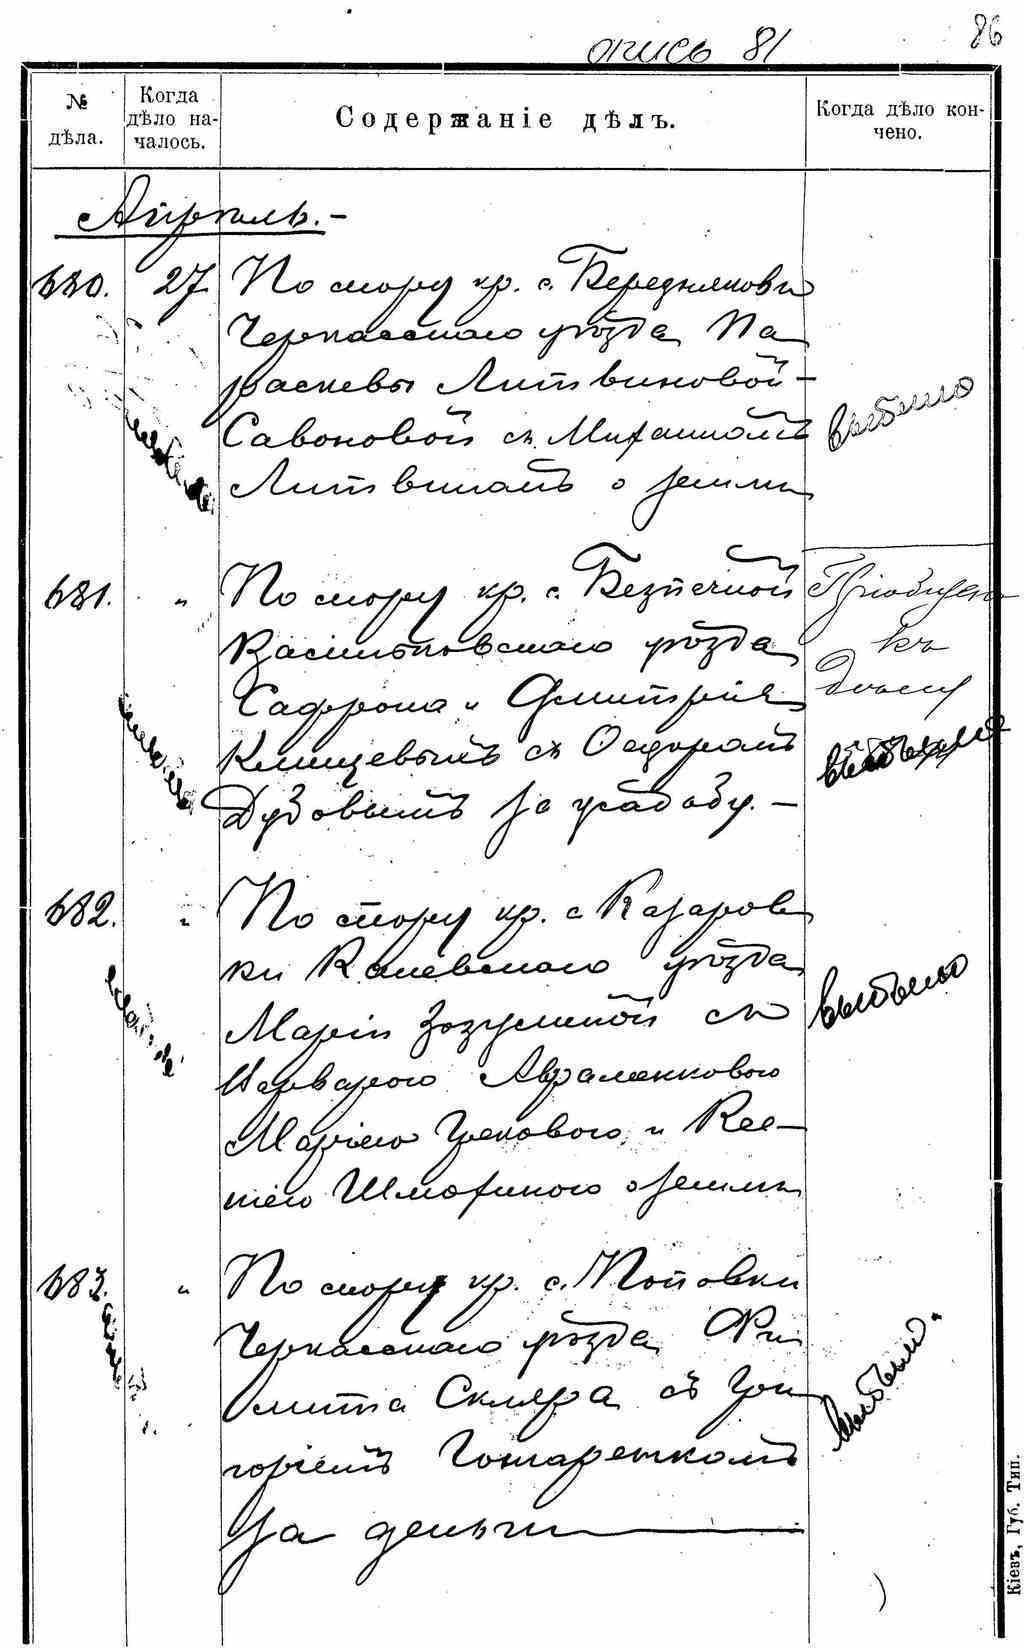 опись 81
86
№ дѣла.
Когда дѣло на-
чалось.
Содержаніе дѣлъ.
Когда дѣло кон-
чено.
Апрѣль.-
680. 27 По спору кр. с. Бередняковки
Черкасскаго уѣзда Па
раскевы Литвиновой-
Савоновой съ Михаиломъ
Литвиномъ о земли
выбыло
681. " По спору кр. с. Безпечной
Васильковскаго уѣзда
Сафрона и Дмитрія
Клищевымъ съ Ѳедоромъ
Дубовымъ за усадьбу.-
Пріобщено
къ
682. " По спору кр. с. Казаров
ки Каневскаго уѣзда
Маріи Зозулиной съ
Варварою Авраменковою
Маріею Грековою и Ксе-
ніею Шмориною о земли
выбыло
683. " По спору кр. с. Поповки
Черкасскаго уѣзда Ѳи
Скляра съ Гри
горіемъ Гончаренкомъ
за деньги
выбыло
Кіевъ, Губ. Тип.